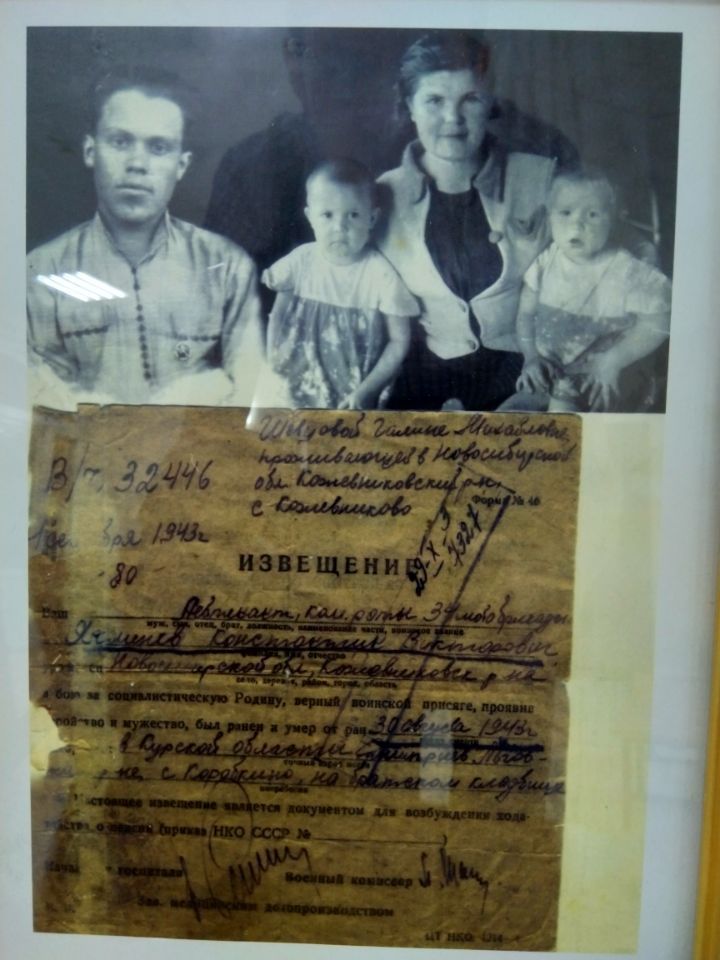 Галине Михайловне
проживающей в Новосибирской
обл Кожевниковский р-н
с Кожевниково
В/ч 32446
Форма № 46
1943г
29-X
7327
80
ИЗВЕЩЕНИЕ
Лейтенант, ком. роты 34 мотобригады
муж, сын, отец, брат, должность, наименование части, воинское звание
Константин Викторович
фамилия, имя, отчество
Новосибирской обл, Кожевниковск р-на
село, деревня, район, город, область
в бою за социалистическую Родину, верный воинской присяге, проявив
геройство и мужество, был ранен и умер от ран 30 августа 1943г
в Курской области
точный адрес места
с Коробкино, на братском кладбище
погребения
Настоящее извещение является документом для возбуждения хода-
тайства о пенсии (приказ НКО СССР №
Начальник госпиталя
Военный комиссар
Зав. медицинским делопроизводством